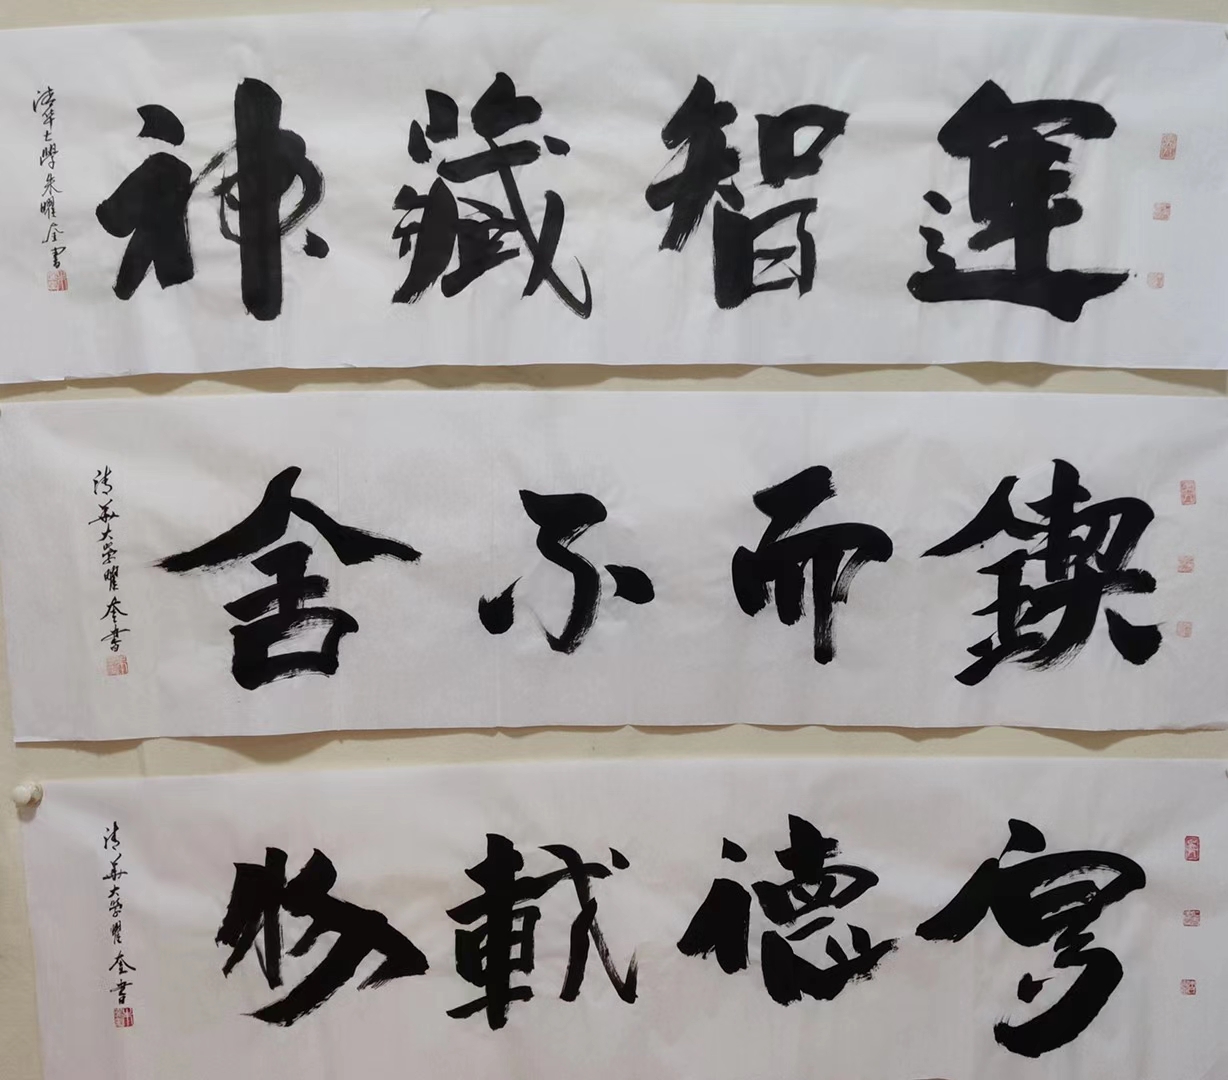 運智藏神
清华大學朱曜奎書
鍥而不舍
清華大學曜奎書
厚德載物
清華大學曜奎書